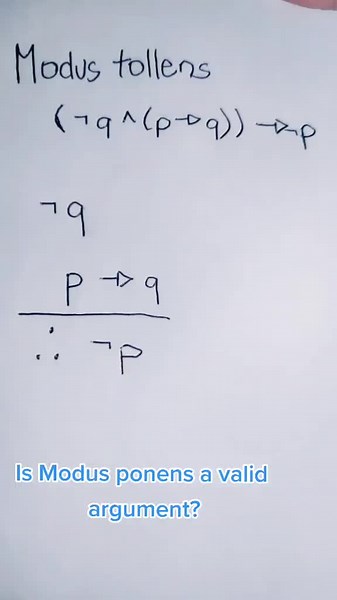 Modus tollens
(¬q ^ (p → q)) → ¬p
¬q
p → q
∴ ¬p
Is Modus ponens a valid
argument?